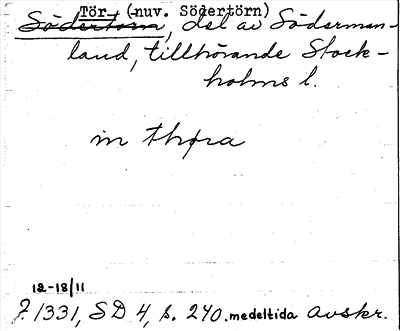 Tör, (nuv. Södertörn)
Södertörn, del av Söderman-
land, tillhörande Stock-
holms l.
in thøra
12-18/11
? 1331, SD 4, s. 240. medeltida avskr.